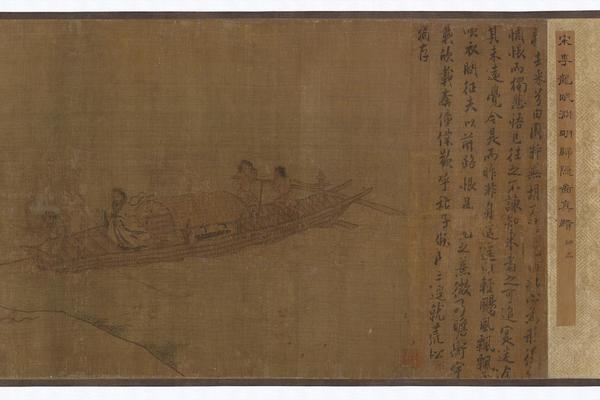 宋李龍眠淵明歸隱圖真蹟 神品
去來兮田園將蕪胡不
心為形役
惆悵而獨悲悟已往之不諫知來者之可追寔迷
其未遠覺今是而昨非舟遙遙以輕颺風飄飄
吹衣問征夫以前路恨晨光之熹微乃瞻衡宇
載欣載奔僮僕歡呼稚子候門三逕就荒松
猶存